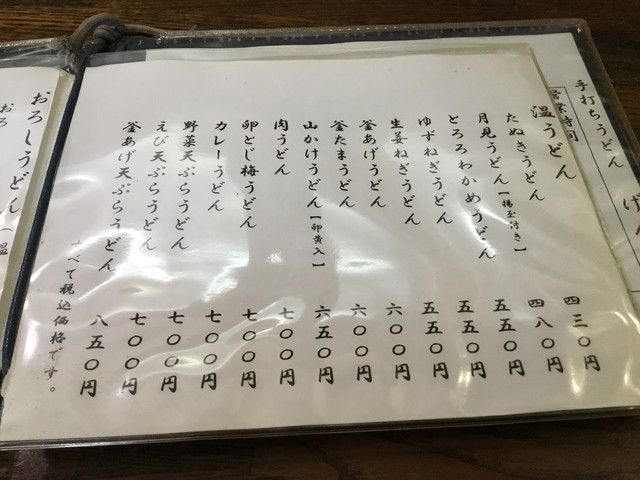 手打ちうどん げん
営業時間
温うどん
たぬきうどん 四三〇円
月見うどん【揚玉付き】 四八〇円
とろろわかめうどん 五五〇円
ゆずねぎうどん 五五〇円
生姜ねぎうどん 五五〇円
釜あげうどん 六〇〇円
釜たまうどん 六〇〇円
山かけうどん【卵黄入】 六五〇円
肉うどん 七〇〇円
卵とじ梅うどん 七〇〇円
カレーうどん 七〇〇円
野菜天ぷらうどん 七〇〇円
えび天ぷらうどん 七〇〇円
釜あげ天ぷらうどん 八五〇円
すべて税込価格です。
おろしうどん
おろ (温